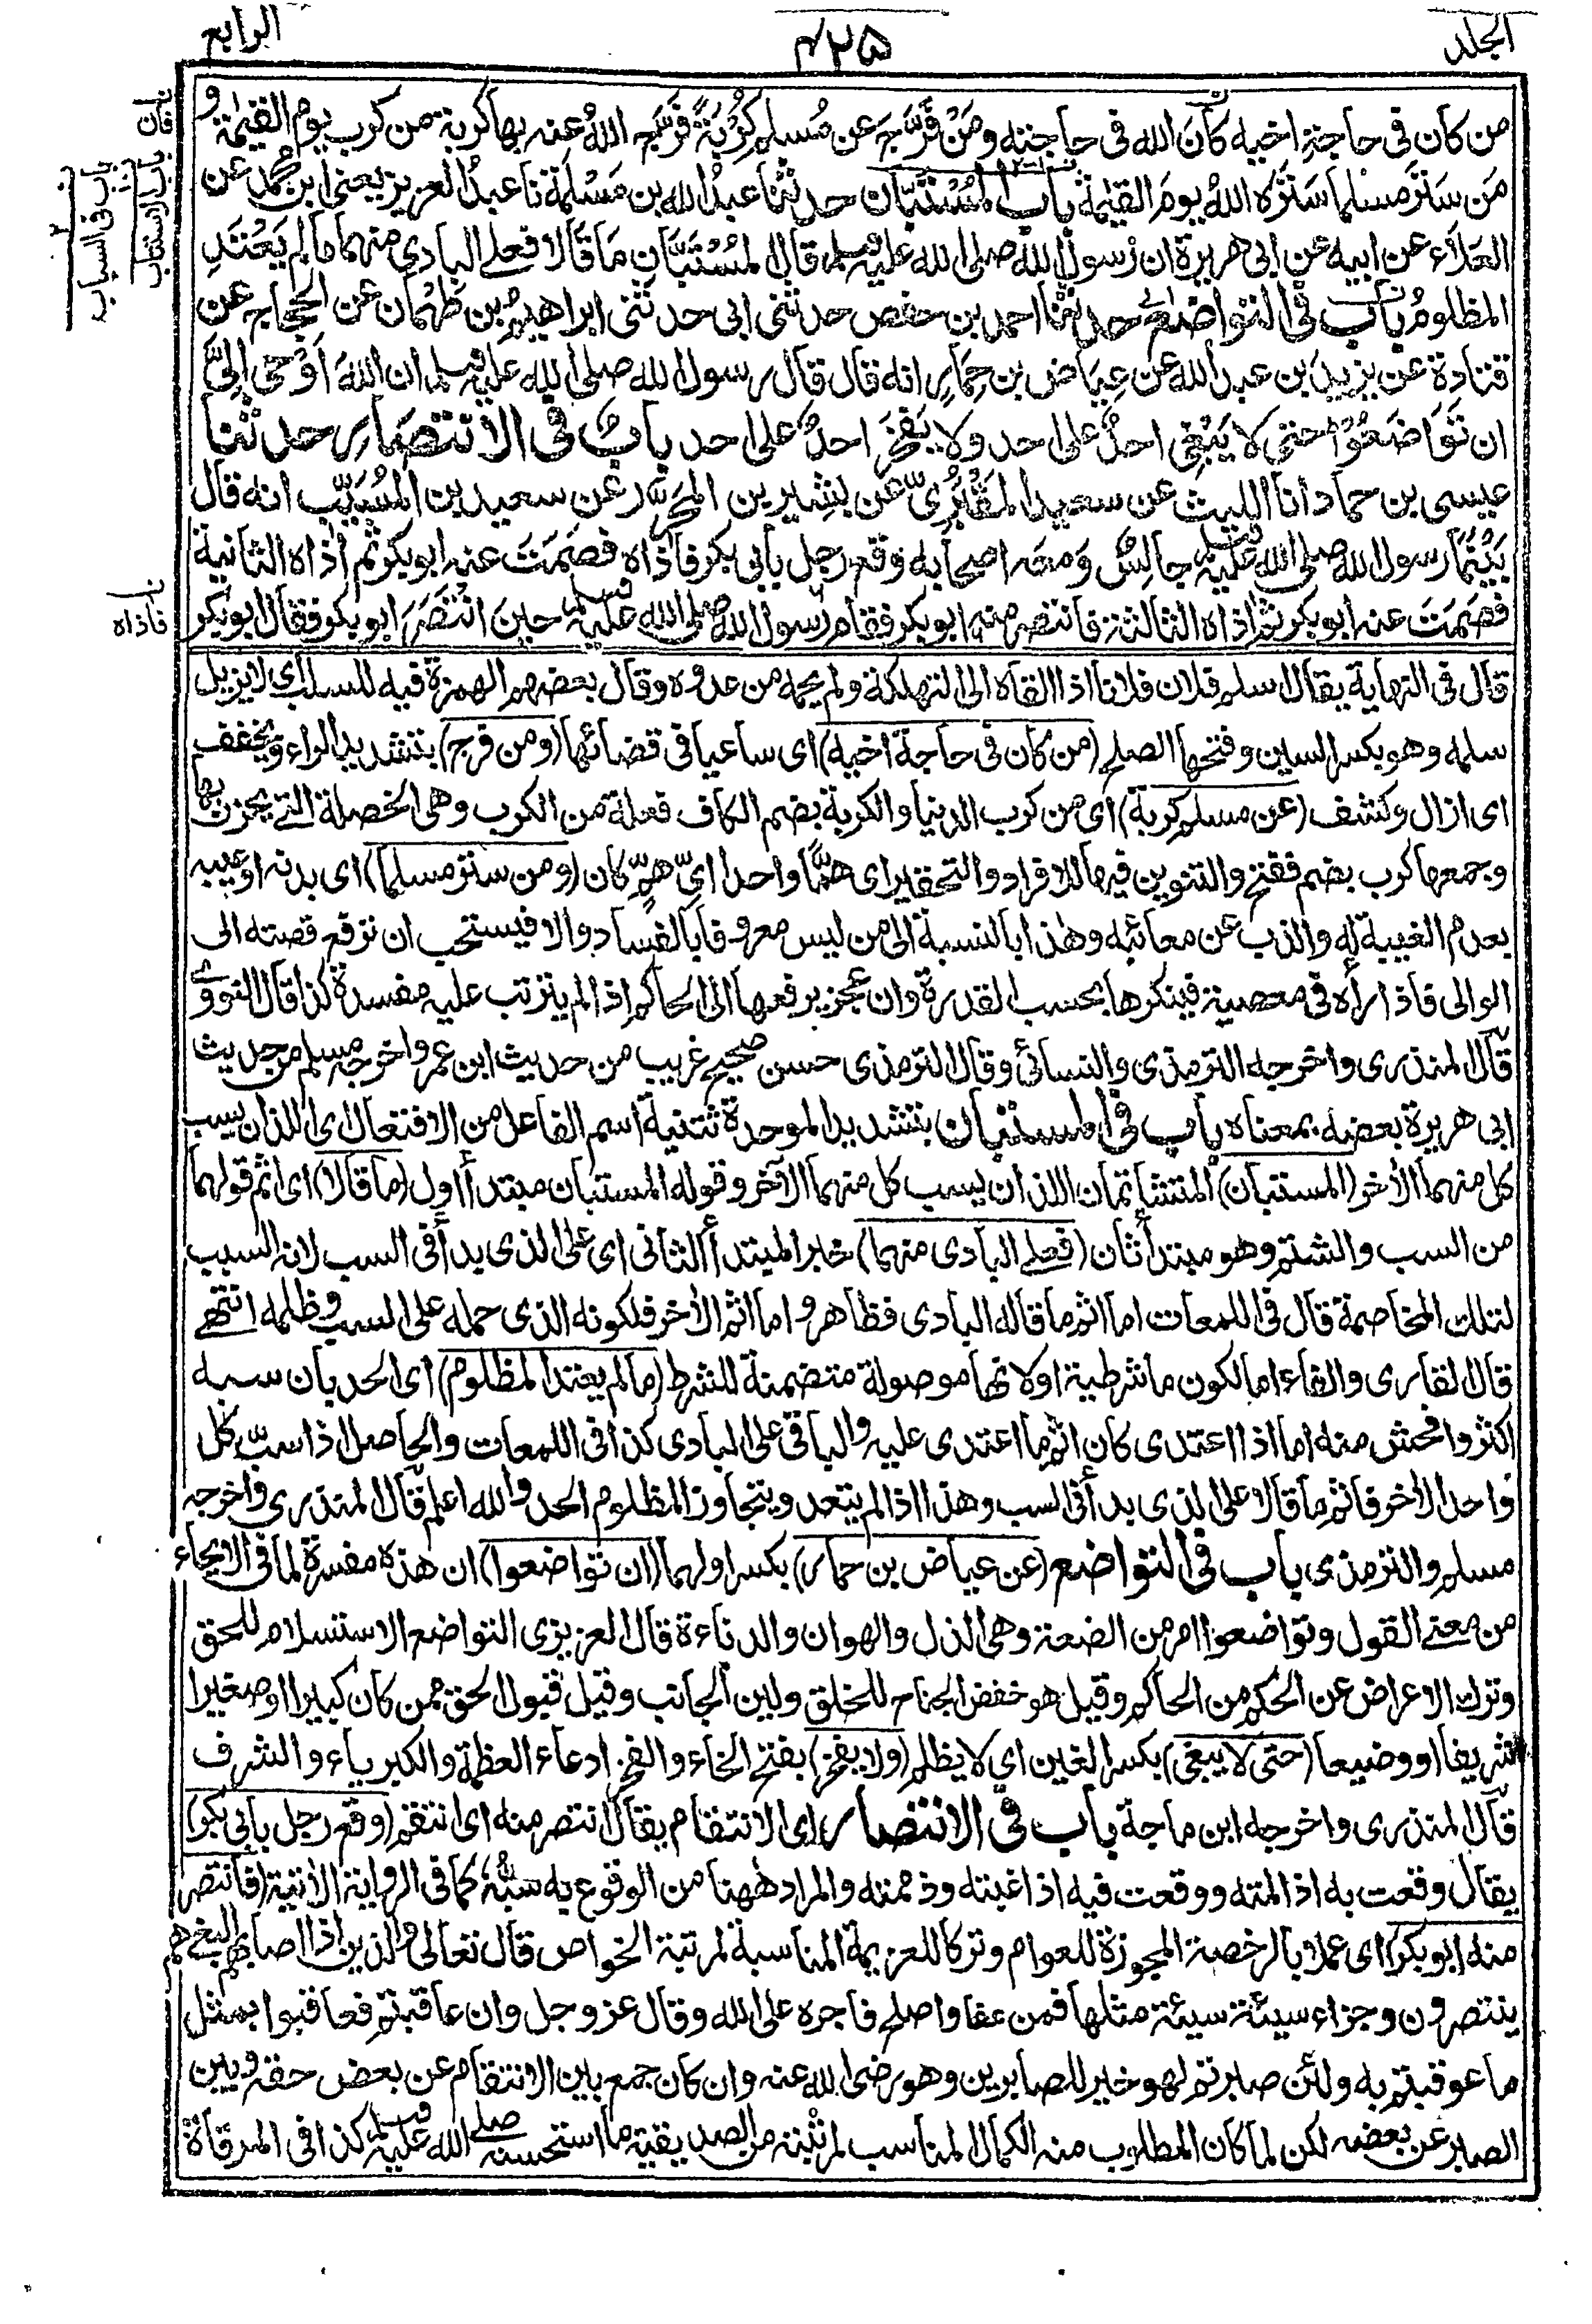 الجلد
٤٢٥
الرابع
من كان فى حاجةِ اخيه كانَ الله فى حاجته ومَنْ فَرَّجَ عن مُسلمٍ كُرْبَةً فَرَّجَ اللهُ عنه بها كربة من كرب يوم القيٰمة و
مَن سَتَرَ مسلما سَتَرَه اللهُ يومَ القيٰمة باب المُسْتَبَّان حدثنا عبدُ الله بن مَسْلَمَة نا عبدُ العزيز يعنى ابن محمد عن
العَلاَء عن ابيه عن ابى هريرة ان رسولَ الله صلى الله عليه وسلم قال المُسْتَبَّانِ مَا قَالا فعلى البادى منهما ما لم يَعْتَدِ
المظلومُ باب فى التواضع حدثنا احمد بن حفص حدثنى ابى حدثنى ابراهيمُ بن طَهْمان عن الحجاج عن
قتادة عن يزيدَ بن عبد الله عن عِيَاض بن حِمَارٍ انه قال قال رسول الله صلى الله عليه وسلم ان اللهَ اَوْحَى اِلَىَّ
ان تَوَاضَعُوْا حتى لا يَبْغِى احدٌ على احد ولا يَفْخَرَ احدٌ على احد باب فى الانتصار حدثنا
عيسى بن حماد انا الليث عن سعيد المَقْبُرِىّ عن بشير بن المحرَّر عن سعيد بن المُسَيّب انه قال
بَيْنَمَا رسول الله صلى الله عليه وسلم جالِسٌ وَمعه اصحابه وقع رجل بابى بكر فاٰذاه فصَمَتَ عنه ابو بكر ثم اٰذاه الثانية
فصَمَتَ عنه ابو بكر ثم اٰذاه الثالثة فانتصر منه ابو بكر فقام رسول الله صلى الله عليه وسلم حينَ انْتَصَرَ ابو بكر فقال ابو بكر
فان
باب الاستباب
باب فى السباب
فاذاه
قال فى النهاية يقال اسلم فلان فلانا اذا القاه الى التهلكة ولم يحمه من عدوه وقال بعضهم الهمزة فيه للسلب اى لا يزيل
سلمه وهو بكسر السين وفتحها الصلح (من كان فى حاجة اخيه) اى ساعيا فى قضائها (ومن فرج) بتشديد الراء ويخفف
اى ازال وكشف (عن مسلم كربة) اى من كرب الدنيا والكربة بضم الكاف فعلة من الكرب وهى الخصلة التى يحزن بها
وجمعها كرب بضم ففتح والتنوين فيها للافراد والتحقير اى همًّا واحدا اىّ همٍّ كان (ومن ستر مسلما) اى بدنه او عيبه
بعدم الغيبة له والذب عن معائبه وهذا بالنسبة الى من ليس معروفا بالفساد والا فيستحب ان ترفع قصته الى
الوالى فاذا رأه فى معصية فينكرها بحسب القدرة وان عجز يرفعها الى الحاكم اذا لم يترتب عليه مفسدة كذا قال النووى
قال المنذرى واخرجه الترمذى والنسائى وقال الترمذى حسن صحيح غريب من حديث ابن عمر واخرجه مسلم من حديث
ابى هريرة بعضه بمعناه باب فى المستبان بتشديد الموحدة تثنية اسم الفاعل من الافتعال اى اللذان يسب
كل منهما الأخر (المستبان) المتشاتمان اللذان يسب كل منهما الآخر وقوله المستبان مبتدأ اول (ما قالا) اى اثم قولهما
من السب والشتم وهو مبتدأ ثان (فعلى البادى منهما) خبر المبتدأ الثانى اى على الذى بدأ فى السب لانه السبب
لتلك المخاصمة قال فى اللمعات اما اثم ما قاله البادى فظاهر واما اثم الأخر فلكونه الذى حمله على السب وظلمه انتهى
قال القارى والفاء اما لكون ما شرطية او لانها موصولة متضمنة للشرط (ما لم يعتد المظلوم) اى الحد بان سبه
اكثر وافحش منه اما اذا اعتدى كان اثم ما اعتدى عليه والباقى على البادى كذا فى اللمعات والحاصل اذا سبّ كل
واحد الأخر فاثم ما قالا على الذى بدأ فى السب وهذا اذا لم يتعد ويتجاوز المظلوم الحد والله اعلم قال المنذرى واخرجه
مسلم والترمذى باب فى التواضع (عن عياض بن حمار) بكسر اولهما (ان تواضعوا) ان هذه مفسرة لما فى الايحاء
من معنى القول وتواضعوا امر من الضعة وهى الذل والهوان والدناءة قال العزيزى التواضع الاستسلام للحق
وترك الاعراض عن الحكم من الحاكم وقيل هو خفض الجناح للخلق ولين الجانب وقيل قبول الحق ممن كان كبيرا او صغيرا
شريفا او وضيعا (حتى لا يبغى) بكسر الغين اى لا يظلم (ولا يفخر) بفتح الخاء والفخر ادعاء العظمة والكبرياء والشرف
قال المنذرى واخرجه ابن ماجة باب فى الانتصار اى الانتقام يقال انتصر منه اى انتقم (وقع رجل بابى بكر)
يقال وقعت به اذا لمته ووقعت فيه اذا غبته وذممته والمراد ههنا من الوقوع به سبُّه كما فى الرواية الأتية (فانتصر
منه ابو بكر) اى عملا بالرخصة المجوزة للعوام وتركا للعزيمة المناسبة لمرتبة الخواص قال تعالى والذين اذا اصابهم البغى هم
ينتصرون وجزاء سيئة سيئة مثلها فمن عفا واصلح فاجره على الله وقال عز وجل وان عاقبتم فعاقبوا بمثل
ما عوقبتم به ولئن صبرتم لهو خير للصابرين وهو رضى الله عنه وان كان جمع بين الانتقام عن بعض حقه وبين
الصبر عن بعضه لكن لما كان المطلوب منه الكمال المناسب لمرتبته من الصديقية ما استحسنه صلى الله عليه وسلم كذا فى المرقاة